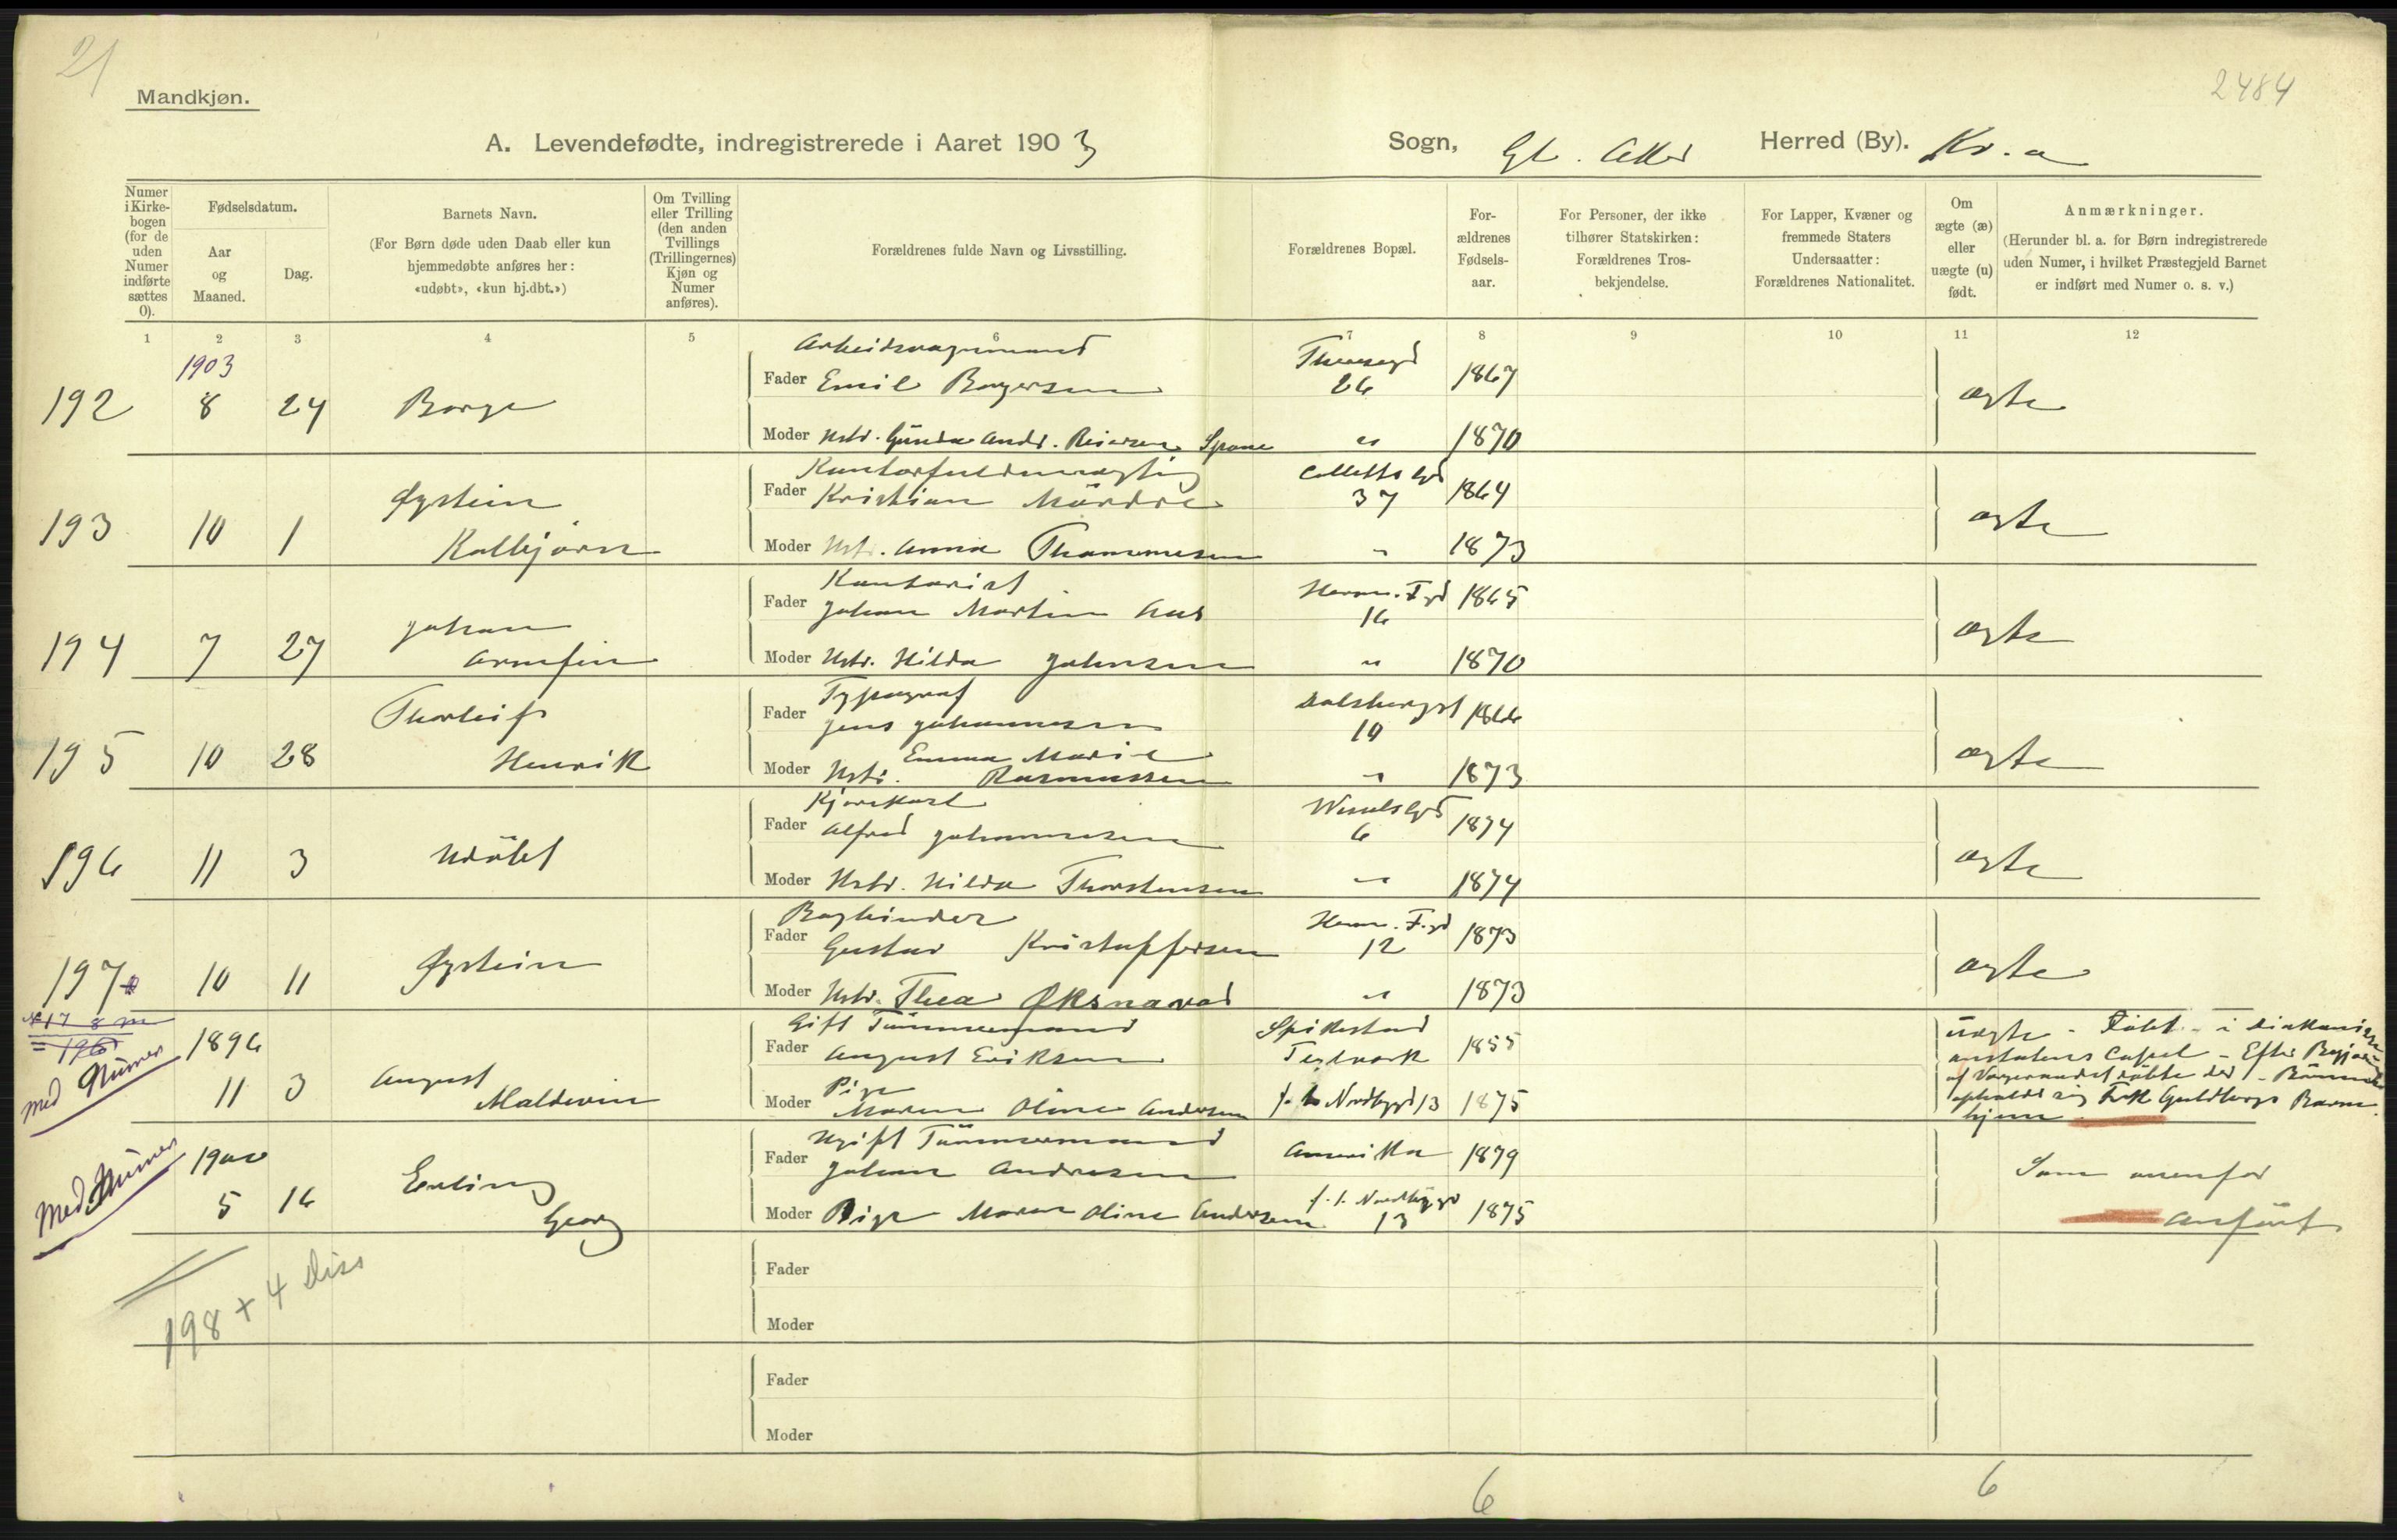 21
2484
Mandkjøn.
A. Levendefødte, indregistrerede i Aaret 1903 Sogn, Gl. Aker Herred (By). Kr.a
Numer i Kirke-bogen (for de uden Numer indførte sættes 0).
Fødselsdatum.
Aar og Maaned.
Dag.
Barnets Navn.
(For Børn døde uden Daab eller kun hjemmedøbte anføres her: «udøbt», «kun hj.dbt.»)
Om Tvilling eller Trilling (den anden Tvillings (Trillingernes) Kjøn og Numer anføres).
Forældrenes fulde Navn og Livsstilling.
Forældrenes Bopæl.
For-ældrenes Fødsels-aar.
For Personer, der ikke tilhører Statskirken: Forældrenes Tros-bekjendelse.
For Lapper, Kvæner og fremmede Staters Undersaatter: Forældrenes Nationalitet.
Om ægte (æ) eller uægte (u) født.
Anmærkninger.
(Herunder bl. a. for Børn indregistrerede uden Numer, i hvilket Præstegjeld Barnet er indført med Numer o. s. v.)
1 2 3 4 5 6 7 8 9 10 11 12
1903
192 8 24 Borge
Fader Emil Borgersen 26 1867 ægte
Moder Hstr. Gunda Andr. Reiersen " 1870
Kontorfuldmægtig Colletts Gd
193 10 1 Øystein Kolbjørn
Fader Kristian Mördre 37 1864 ægte
Moder Hstr. Anna Thommesen " 1873
Kontorist Herm. F. gd
194 7 27 Johan Arnefin
Fader Johan Martin Aas 16 1865 ægte
Moder Hstr. Hilda Johnsen " 1870
Typograf Dalsbergst
195 10 28 Thorleif Henrik
Fader Jens Johannesen 10 ægte
Emma Marie
Moder Hstr. Rasmussen " 1873
Kjørekarl Wessels Gd
196 11 3 Udöbt
Fader Alfred Johannesen 6 1874 ægte
Moder Hstr. Hilda Thorstensen " 1874
Bogbinder Herm. F. gd
197 10 11 Øystein
Fader Gustav Kristoffersen 12 1873 ægte
Moder Hstr. Thea Øksnavad " 1873
Gift Tömmermand Spikestad
med Numer 1896 11 3 August Maldevin
Fader August Eriksen 1855
Pige
Moder Maren Oline Andersen f. t. Nordbygd 13 1875
uægte - Döbt - i Diakonisse
anstaltens Capel - Efter Begjæring
af Vergeraadet döbte der - Barnet
opholdt sig Frk Guldbergs Barne
hjem
Med Numer 1900 5 16 Erling Georg
Ugift Tömmermand
Fader Johan Andresen Amerika 1879
Moder Pige Maren Oline Andersen f. t. Nordbygd 13 1875
Som ovenfor
Anført
198 + 4 Diss
Fader
Moder
Fader
Moder
6 6